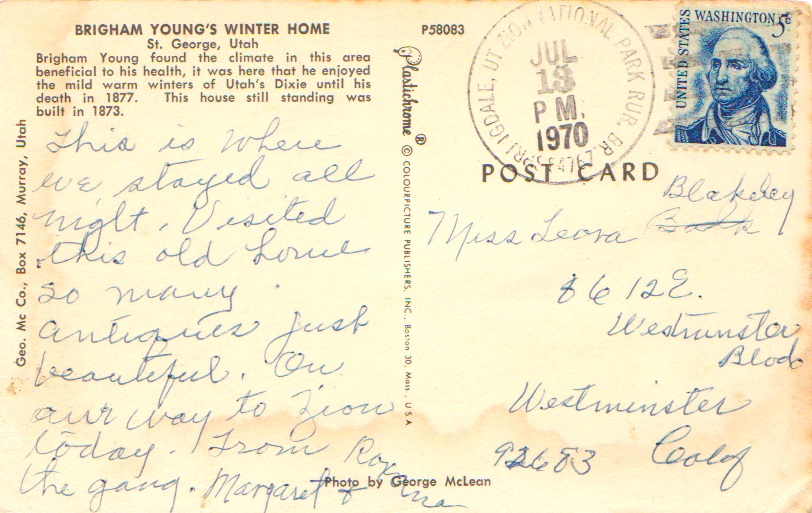 BRIGHAM YOUNG'S WINTER HOME
St. George, Utah
Brigham Young found the climate in this area
beneficial to his health, it was here that he enjoyed
the mild warm winters of Utah's Dixie until his
death in 1877. This house still standing was
built in 1873.
This is where
we stayed all
night. Visited
this old home
so many
antiques just
beautiful. On
our way to Zion
today. From
the gang. Margaret &
Geo. Mc Co., Box 7146, Murray, Utah
Photo by George McLean
P58083
Plastichrome ®
© COLOURPICTURE PUBLISHERS, INC., Boston 30, Mass., U.S.A.
SPRINGDALE, UT. ZION NATIONAL PARK RUR. BR.
JUL
13
P M.
1970
UNITED STATES WASHINGTON 5c
POST CARD
Blakeley
Miss Leora
8612 E.
Westminster
Blvd
Westminster
92683 Calif